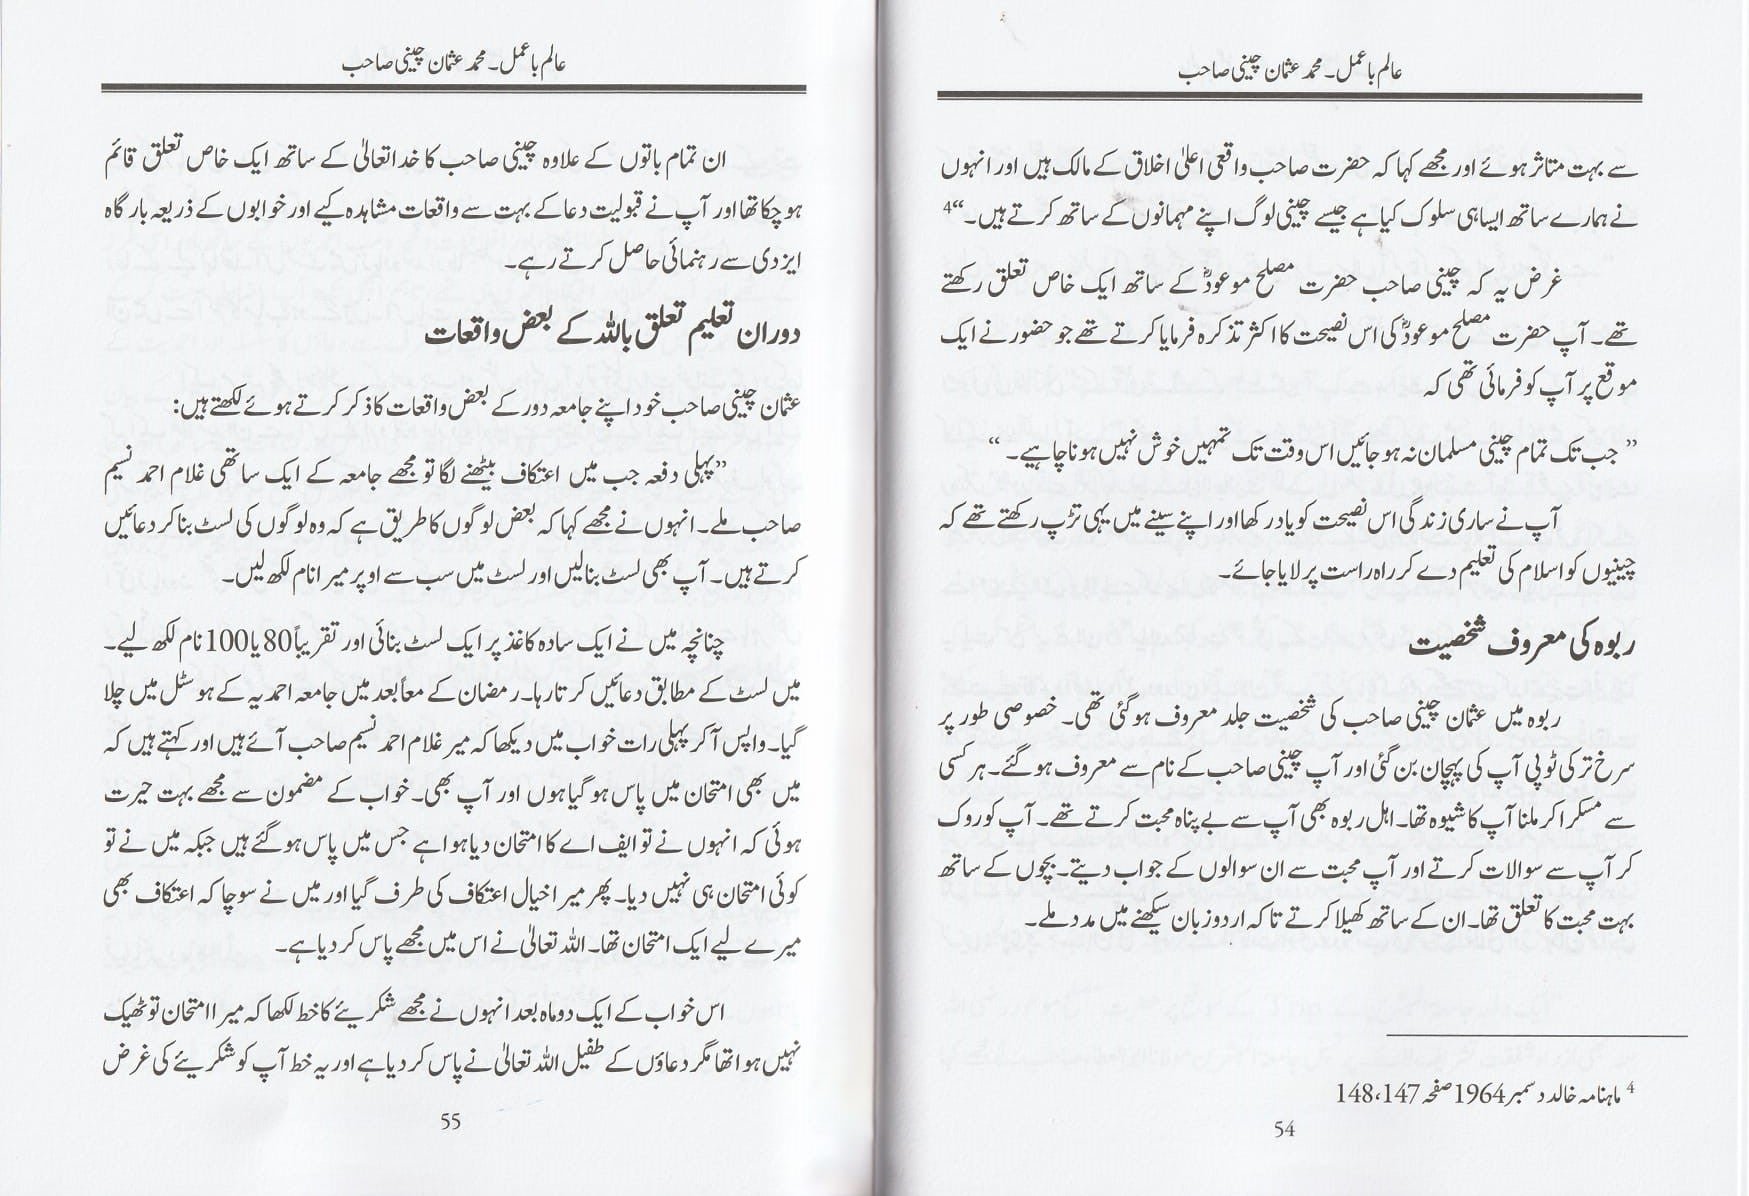 عالم باعمل۔ محمد عثمان چینی صاحب
سے بہت متاثر ہوئے اور مجھے کہا کہ حضرت صاحب واقعی اعلیٰ اخلاق کے مالک ہیں اور انہوں
نے ہمارے ساتھ ایسا ہی سلوک کیا ہے جیسے چینی لوگ اپنے مہمانوں کے ساتھ کرتے ہیں۔“4
غرض یہ کہ چینی صاحب حضرت مصلح موعودؓ کے ساتھ ایک خاص تعلق رکھتے
تھے۔ آپ حضرت مصلح موعودؓ کی اس نصیحت کا اکثر تذکرہ فرمایا کرتے تھے جو حضور نے ایک
موقع پر آپ کو فرمائی تھی کہ
”جب تک تمام چینی مسلمان نہ ہو جائیں اس وقت تک تمہیں خوش نہیں ہونا چاہیے۔“
آپ نے ساری زندگی اس نصیحت کو یاد رکھا اور اپنے سینے میں یہی تڑپ رکھتے تھے کہ
چینیوں کو اسلام کی تعلیم دے کر راہ راست پر لایا جائے۔
ربوہ کی معروف شخصیت
ربوہ میں عثمان چینی صاحب کی شخصیت جلد معروف ہو گئی تھی۔ خصوصی طور پر
سرخ ترکی ٹوپی آپ کی پہچان بن گئی اور آپ چینی صاحب کے نام سے معروف ہو گئے۔ ہر کسی
سے مسکرا کر ملنا آپ کا شیوہ تھا۔ اہل ربوہ بھی آپ سے بے پناہ محبت کرتے تھے۔ آپ کو روک
کر آپ سے سوالات کرتے اور آپ محبت سے ان سوالوں کے جواب دیتے۔ بچوں کے ساتھ
بہت محبت کا تعلق تھا۔ ان کے ساتھ کھیلا کرتے تاکہ اردو زبان سیکھنے میں مدد ملے۔
4 ماہنامہ خالد دسمبر 1964 صفحہ 147، 148
54
عالم باعمل۔ محمد عثمان چینی صاحب
ان تمام باتوں کے علاوہ چینی صاحب کا خدا تعالیٰ کے ساتھ ایک خاص تعلق قائم
ہو چکا تھا اور آپ نے قبولیت دعا کے بہت سے واقعات مشاہدہ کیے اور خوابوں کے ذریعہ بارگاہ
ایزدی سے رہنمائی حاصل کرتے رہے۔
دوران تعلیم تعلق باللہ کے بعض واقعات
عثمان چینی صاحب خود اپنے جامعہ دور کے بعض واقعات کا ذکر کرتے ہوئے لکھتے ہیں:
”پہلی دفعہ جب میں اعتکاف بیٹھنے لگا تو مجھے جامعہ کے ایک ساتھی غلام احمد نسیم
صاحب ملے۔ انہوں نے مجھے کہا کہ بعض لوگوں کا طریق ہے کہ وہ لوگوں کی لسٹ بنا کر دعائیں
کرتے ہیں۔ آپ بھی لسٹ بنا لیں اور لسٹ میں سب سے اوپر میرا نام لکھ لیں۔
چنانچہ میں نے ایک سادہ کاغذ پر ایک لسٹ بنائی اور تقریباً 80 یا 100 نام لکھ لیے۔
میں لسٹ کے مطابق دعائیں کرتا رہا۔ رمضان کے معاً بعد میں جامعہ احمدیہ کے ہوسٹل میں چلا
گیا۔ واپس آ کر پہلی رات خواب میں دیکھا کہ میر غلام احمد نسیم صاحب آئے ہیں اور کہتے ہیں کہ
میں بھی امتحان میں پاس ہو گیا ہوں اور آپ بھی۔ خواب کے مضمون سے مجھے بہت حیرت
ہوئی کہ انہوں نے تو ایف اے کا امتحان دیا ہوا ہے جس میں پاس ہو گئے ہیں جبکہ میں نے تو
کوئی امتحان ہی نہیں دیا۔ پھر میرا خیال اعتکاف کی طرف گیا اور میں نے سوچا کہ اعتکاف بھی
میرے لیے ایک امتحان تھا۔ اللہ تعالیٰ نے اس میں مجھے پاس کر دیا ہے۔
اس خواب کے ایک دو ماہ بعد انہوں نے مجھے شکریئے کا خط لکھا کہ میرا امتحان تو ٹھیک
نہیں ہوا تھا مگر دعاؤں کے طفیل اللہ تعالیٰ نے پاس کر دیا ہے اور یہ خط آپ کو شکریئے کی غرض
55